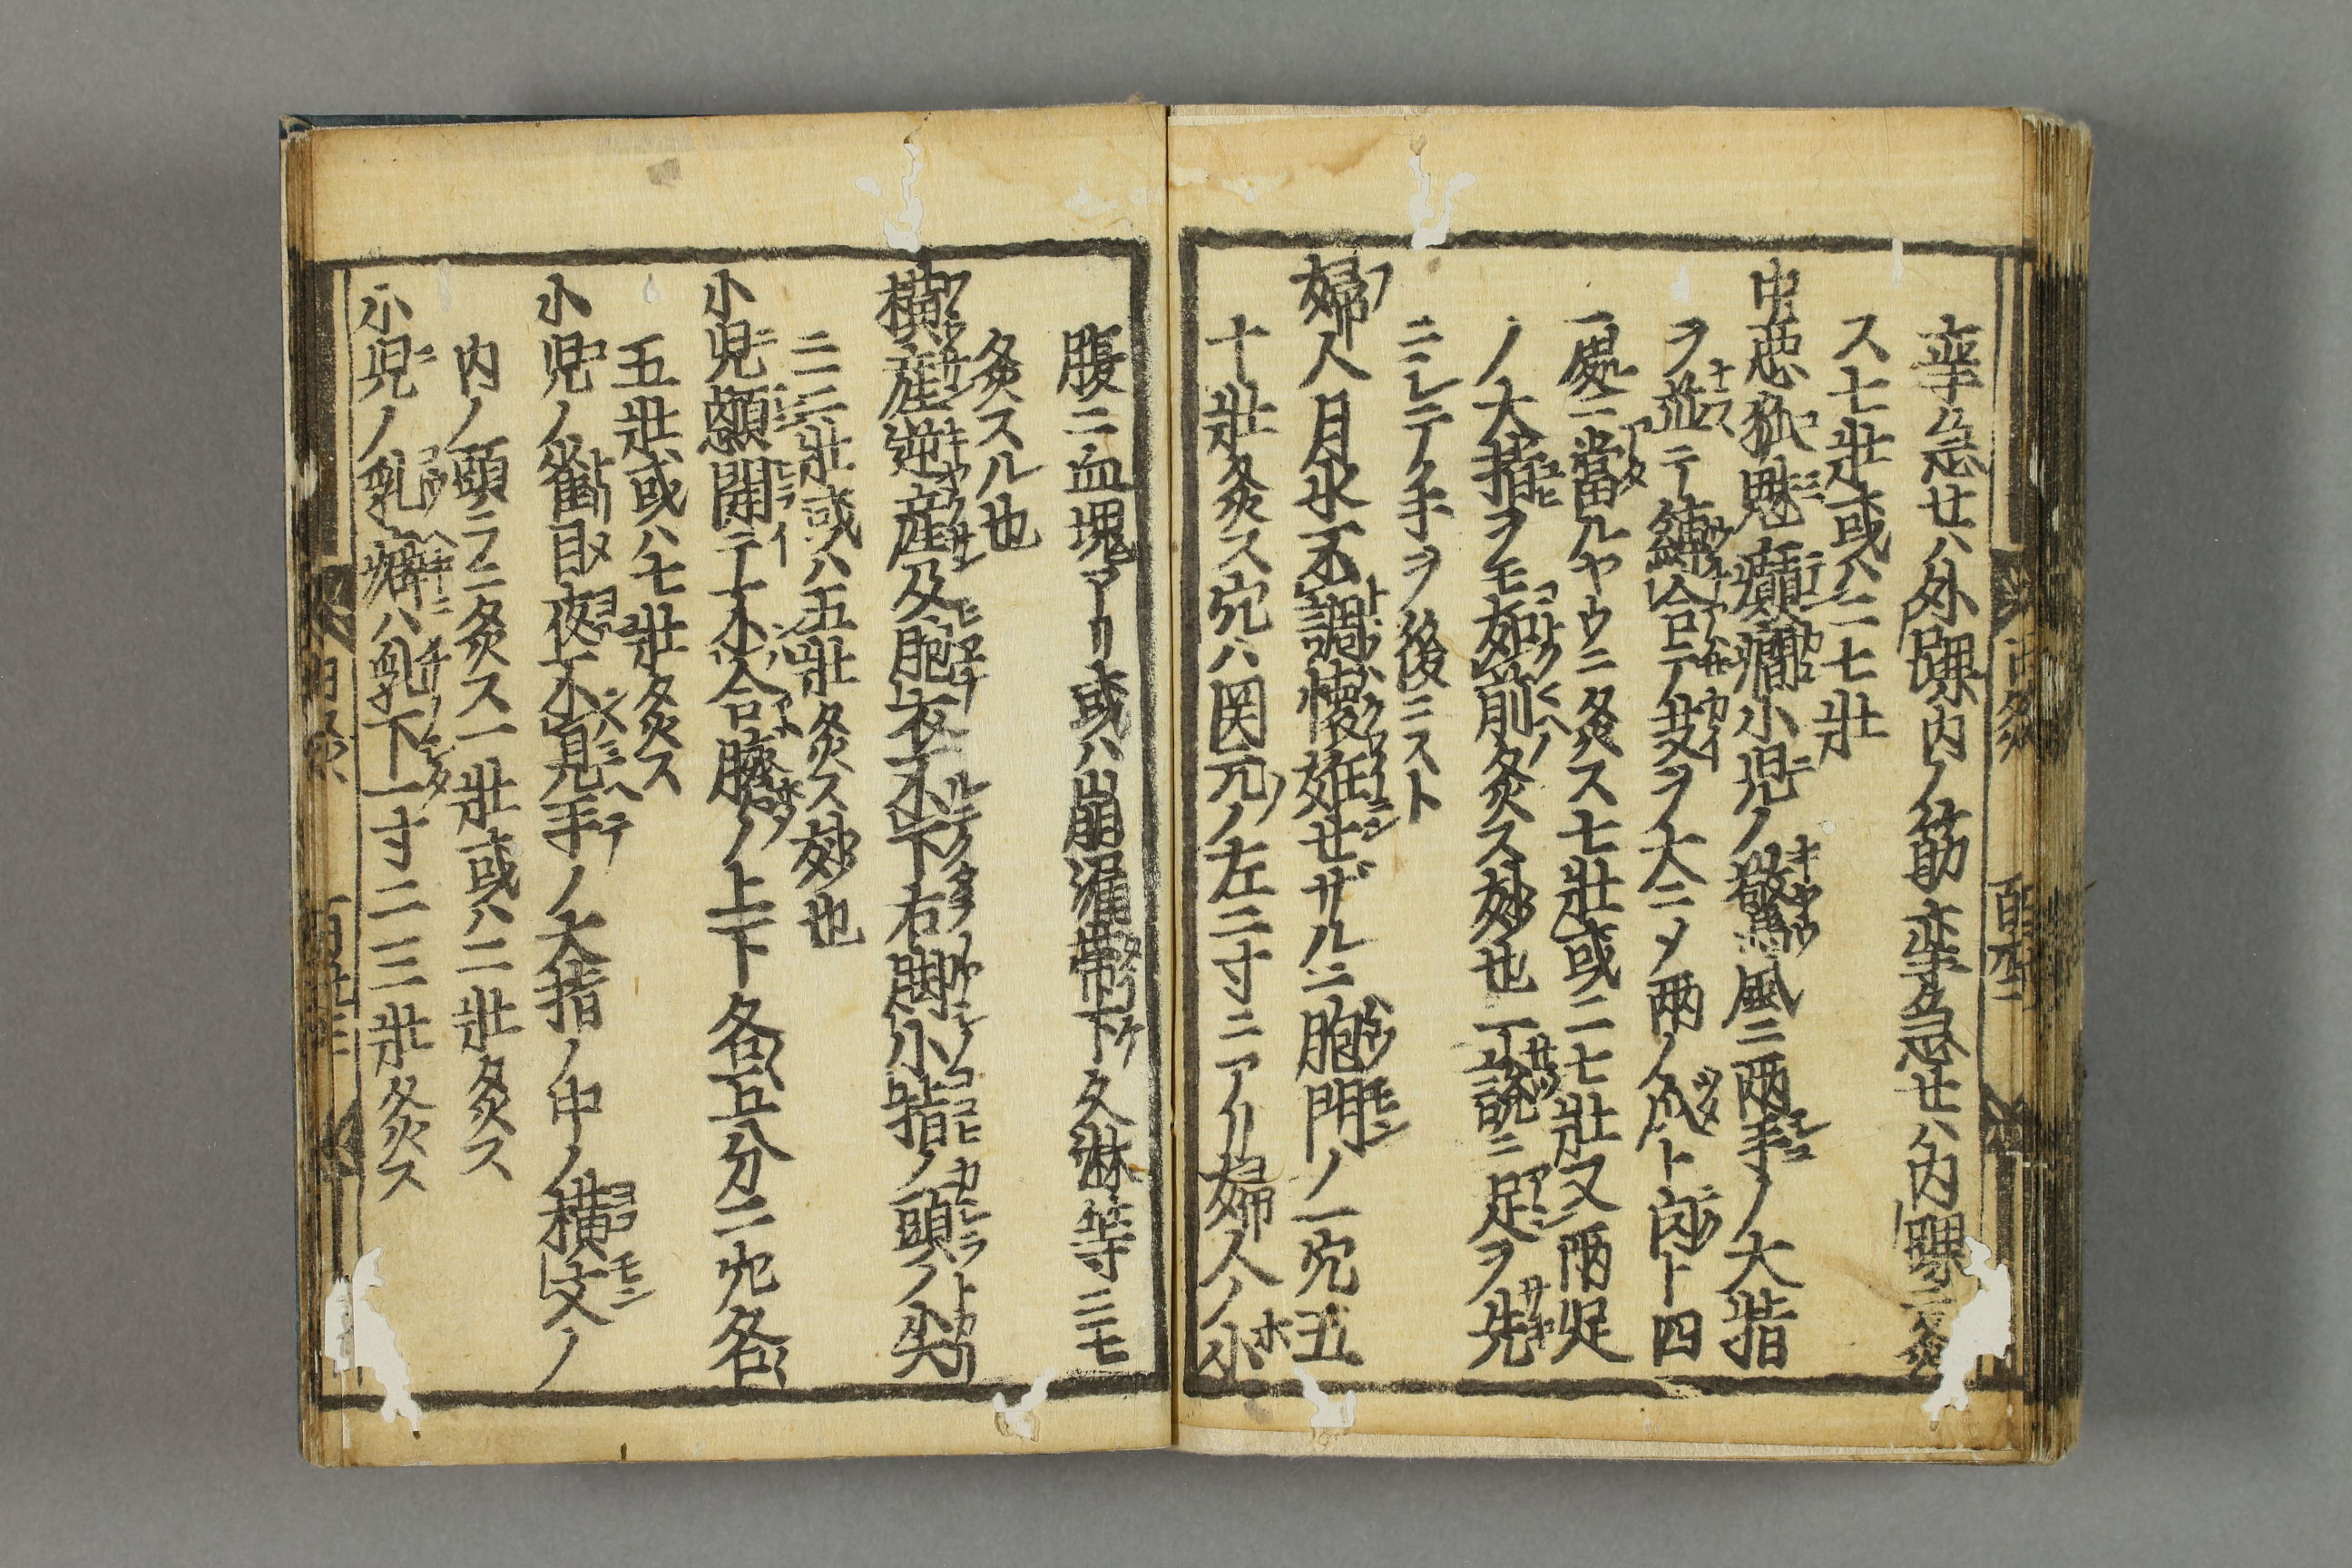 攣急セハ外踝内ノ筋攣急セハ内踝ニ灸
ス七壯或ハ二七壯
中惡狐魅癲癇小児ノ驚風ニ両手ノ大指
ヲ並テ縛合テ艾ヲ大ニメ両ノ爪ト肉ト四
處ニ當ルヤウニ灸ス七壯或二七壯又両足
ノ大指ヲモ如前灸ス妙也一説ニ足ヲ先
ニシテ手ヲ後ニスト
婦人月水不調懐妊セザルニ胞門ノ一穴五
十壯灸ス穴ハ関元ノ左二寸ニアリ婦人ノ小
腹ニ血塊アリ或ハ崩漏帶下久淋等ニ二七
灸スル也
横産逆産及胞衣不下右脚小指ノ頭ノ尖
ニ三壯或ハ五壯灸ス妙也
小児顖開テ不合臍ノ上下各五分二穴各
五壯或ハ七壯灸ス
小児ノ雀目夜不見手ノ大指ノ中ノ横文ノ
内ノ頭ラニ灸ス一壯或ハ二壯灸ス
小児ノ乳癖ハ乳下一寸二三壯灸ス